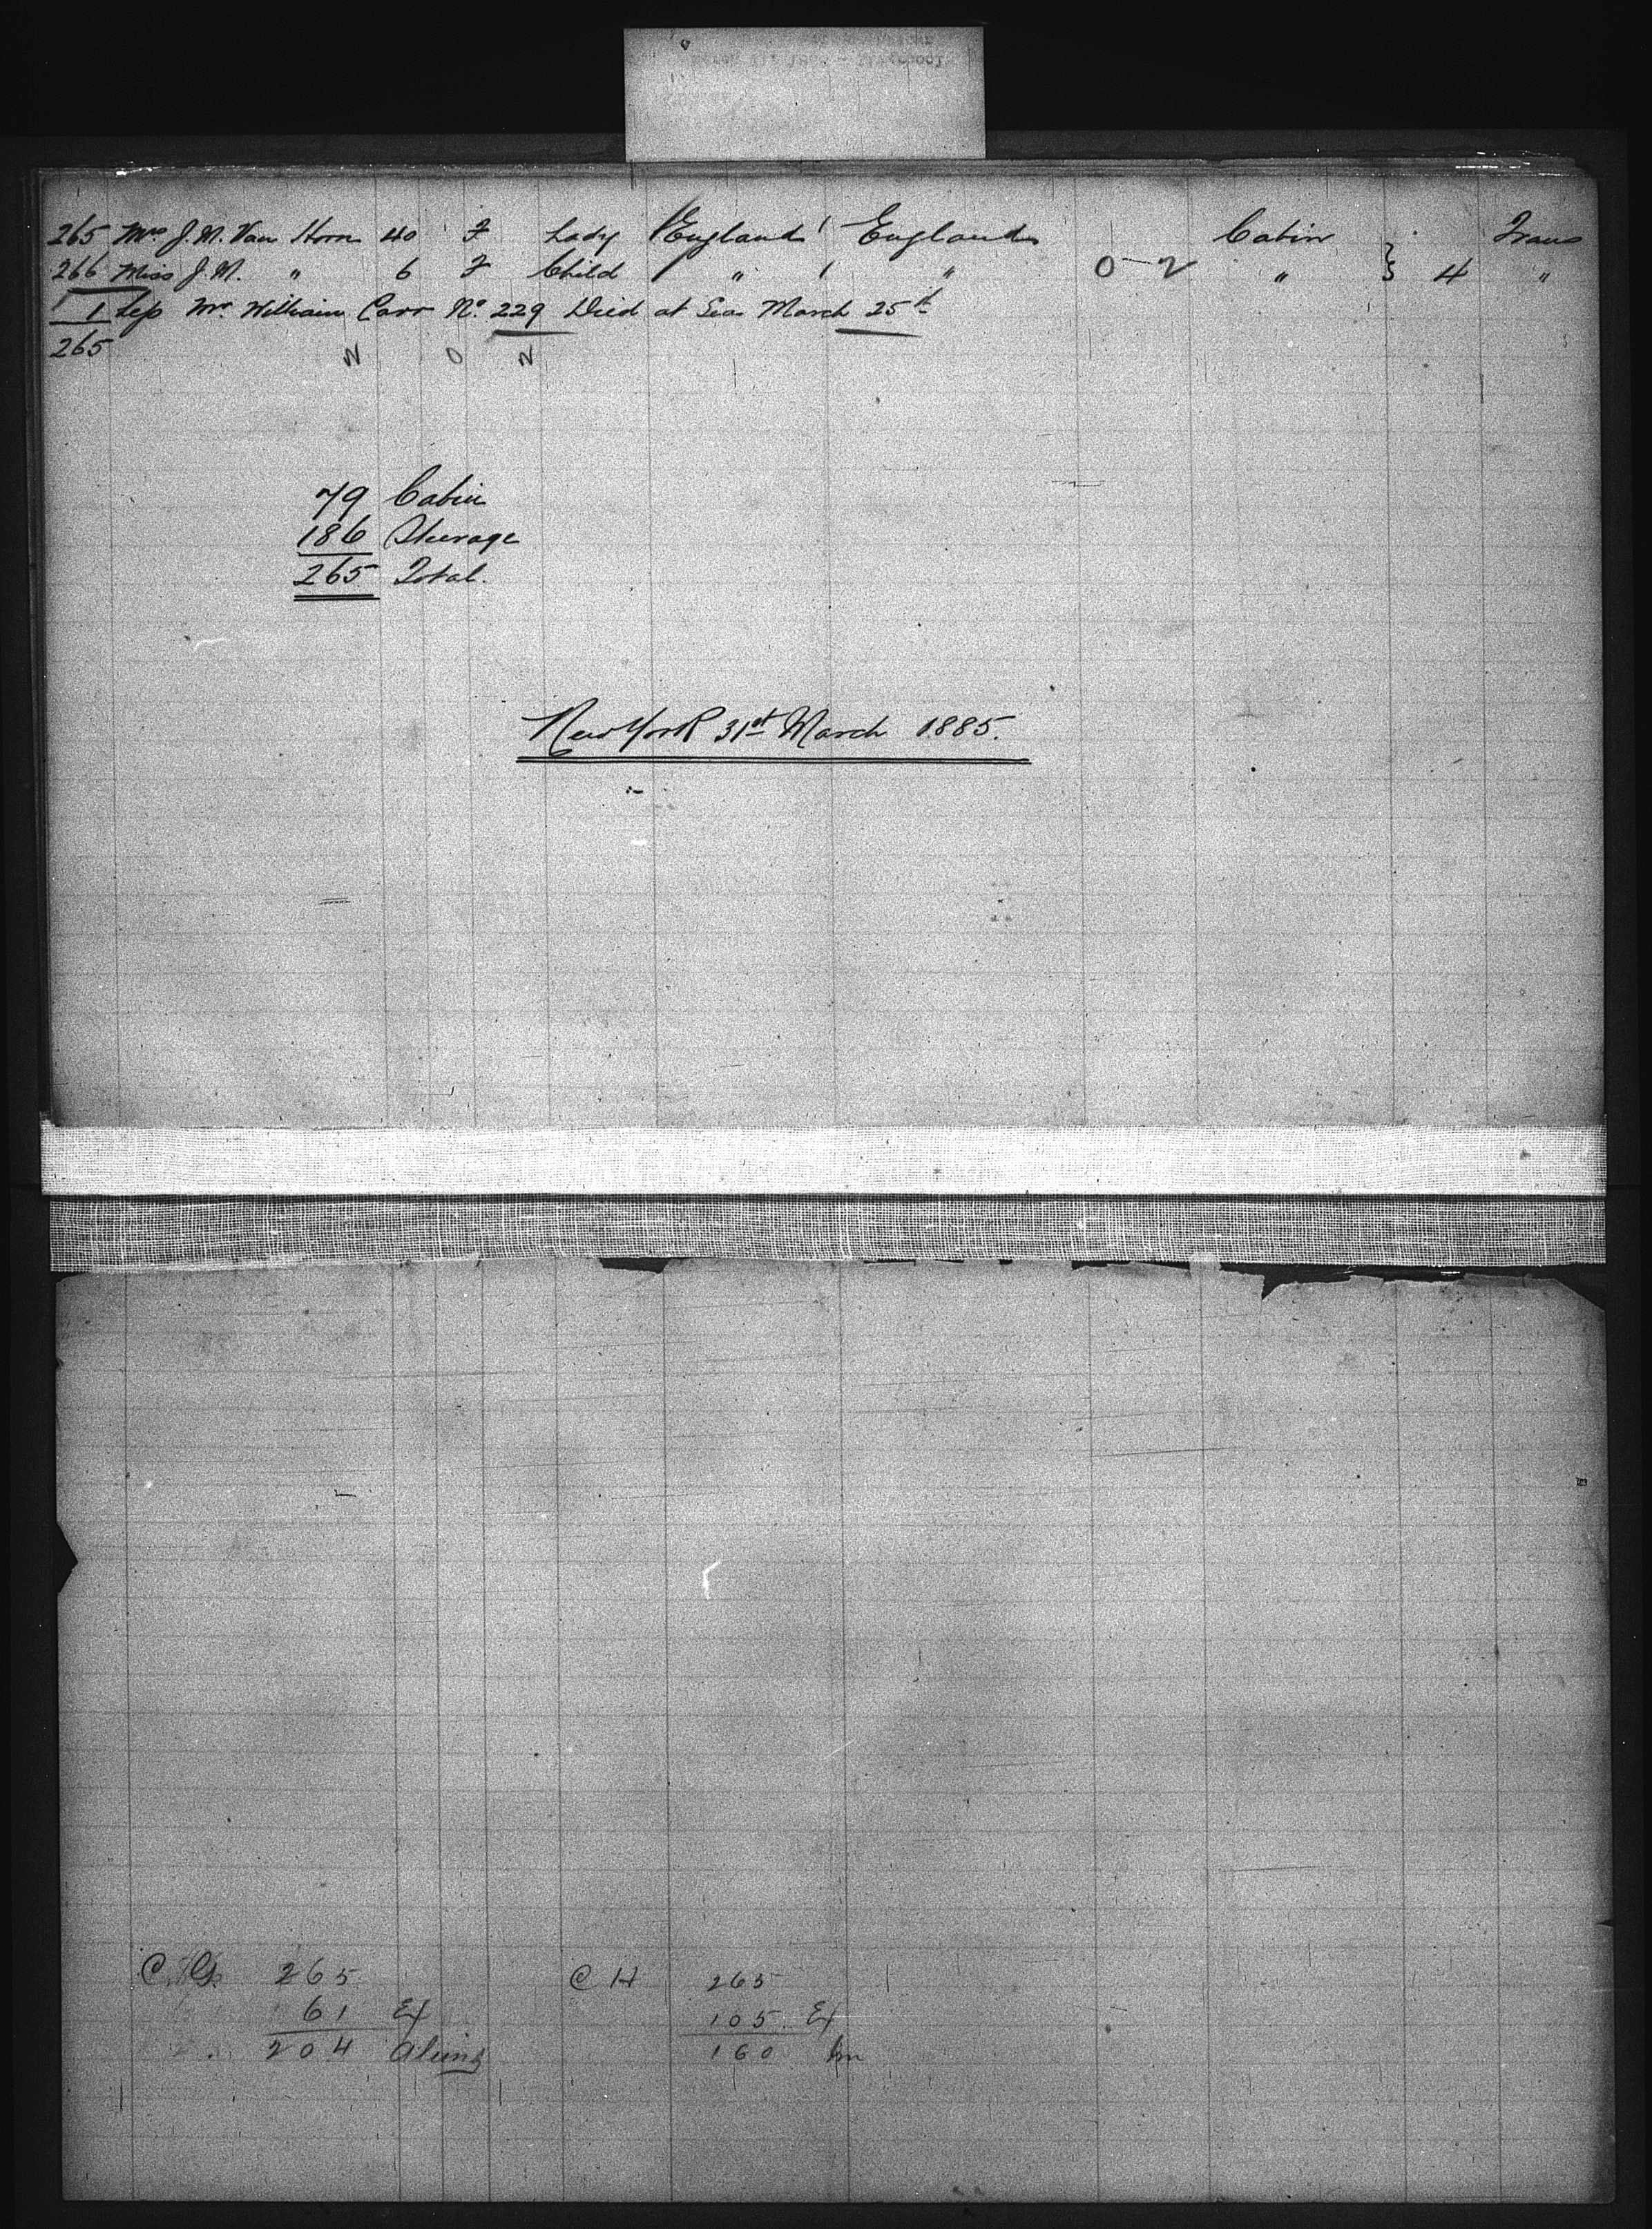 265 Mrs J. M. Van Horn 40 F Lady England England Cabin Trans
266 Miss J. M. " 6 F Child " " 0-2 " } 4 "
1 Less Mr. William Carr No. 229 Died at Sea March 25th
265
2 0 2
79 Cabin
186 Steerage
265 Total.
New York 31st March 1885.
C. G. 265 C H 265
61 Ex 105 Ex
204 Aliens 160 Im